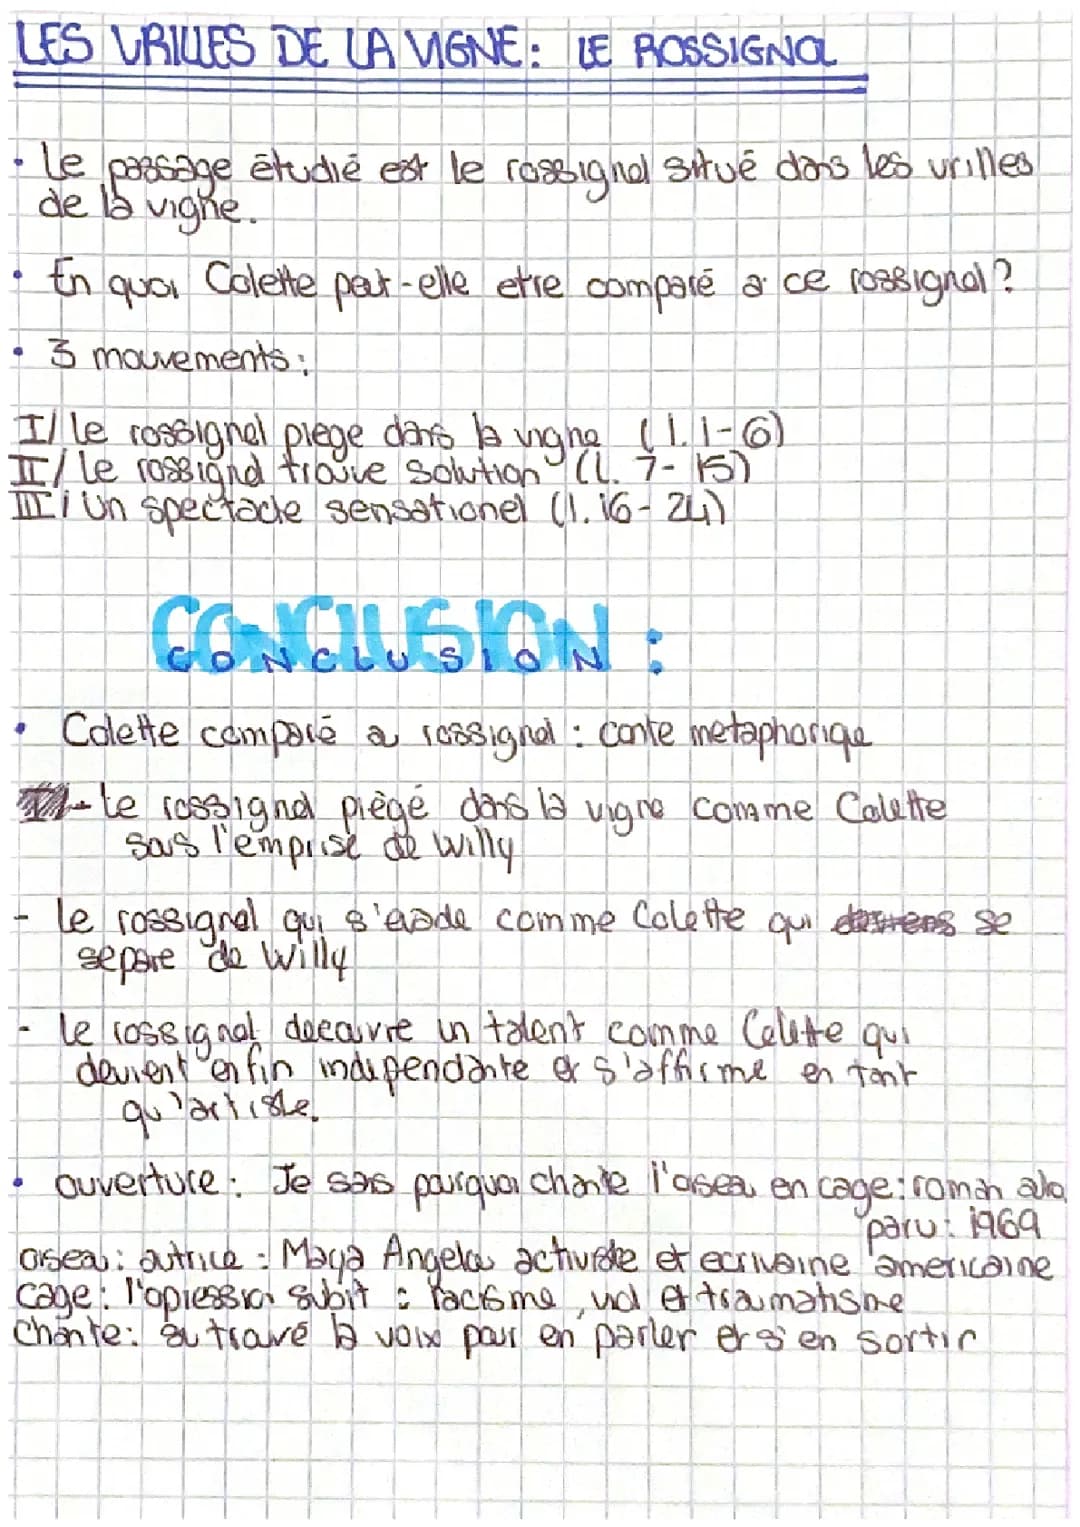 LES VRILLES DE LA VIGNE: LE ROSSIGNOL
• Le passage étudié est le rossignol situé dans les vrilles
de la vigne.
• En quoi Colette peut-elle etre comparé a ce rossignol?
• 3 mouvements:
I/ Le rossignol piege dans la vigne (l.1-6)
II/ Le rossignol trouve solution (l. 7-15)
III/ Un spectacle sensationel (l.16-24)
CONCLUSION :
• Colette comparé a rossignol : conte metaphorique
- Le rossignol piègé dans la vigne comme Colette
sous l'emprise de Willy
- le rossignol qui s'evade comme Colette qui se
separe de Willy
- le rossignol decouvre un talent comme Colette qui
devient enfin independante et s'affirme en tant
qu'artiste.
• ouverture: Je sais pourquoi chante l'oiseau en cage: roman
paru: 1969
oiseau: autrice : Maya Angelou activiste et ecrivaine americaine
cage: l'opression subit : racisme, viol et traumatisme
chante: a trouvé la voix pour en parler et s'en sortir